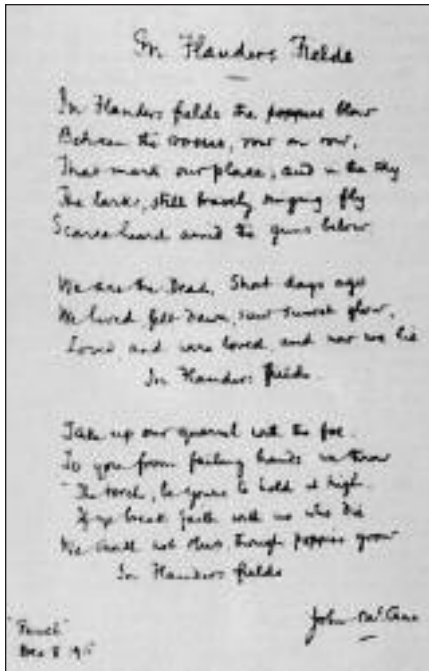 In Flanders Fields
In Flanders fields the poppies blow
Between the crosses, row on row,
That mark our place, and in the sky
The larks, still bravely singing fly
Scarce heard amid the guns below.
We are the Dead. Short days ago
We lived, felt dawn, saw sunset glow,
Loved and were loved, and now we lie
In Flanders fields.
Take up our quarrel with the foe
To you from failing hands we throw
The torch, be yours to hold it high
If ye break faith with us who die
We shall not sleep, though poppies grow
In Flanders fields
John McCrae
"Punch"
Dec 8 1915